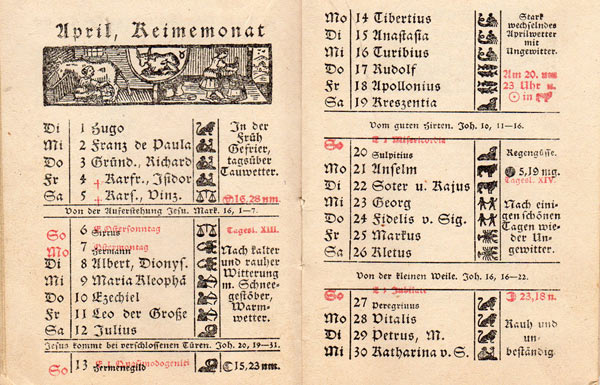 April, Keimemonat
Di 1 Hugo
Mi 2 Franz de Paula
Do 3 Gründ., Richard
Fr 4 † Karfr., Isidor
Sa 5 † Karf., Vinz.
In der
Früh
Gefrier,
tagsüber
Tauwetter.
16,28 nm.
Von der Auferstehung Jesu. Mark. 16, 1—7.
So 6 Ostersonntag
Sixtus
Mo 7 Ostermontag
Hermann
Di 8 Albert, Dionys.
Mi 9 Maria Kleophä
Do 10 Ezechiel
Fr 11 Leo der Große
Sa 12 Julius
Tagesl. XIII.
Nach kalter
und rauher
Witterung
m. Schnee-
gestöber,
Warm-
wetter.
Jesus kommt bei verschlossenen Türen. Joh. 20, 19—31.
So 13 E 1 Quasimodogeniti
Hermenegild
15,23 nm.
Mo 14 Tibertius
Di 15 Anastasia
Mi 16 Turibius
Do 17 Rudolf
Fr 18 Apollonius
Sa 19 Kreszentia
Stark
wechselndes
Aprilwetter
mit
Ungewitter.
Am 20. um
23 Uhr n.
☉ in
Vom guten Hirten. Joh. 10, 11—16.
So 20 E 2 Misericordia
Sulpitius
Mo 21 Anselm
Di 22 Soter u. Kajus
Mi 23 Georg
Do 24 Fidelis v. Sig.
Fr 25 Markus
Sa 26 Kletus
Regengüsse.
5,19 mg.
Tagesl. XIV.
Nach eini-
gen schönen
Tagen wie-
der Un-
gewitter.
Von der kleinen Weile. Joh. 16, 16—22.
So 27 E 3 Jubilate
Peregrinus
Mo 28 Vitalis
Di 29 Petrus, M.
Mi 30 Katharina v. S.
23,18 n.
Rauh und
un-
beständig.